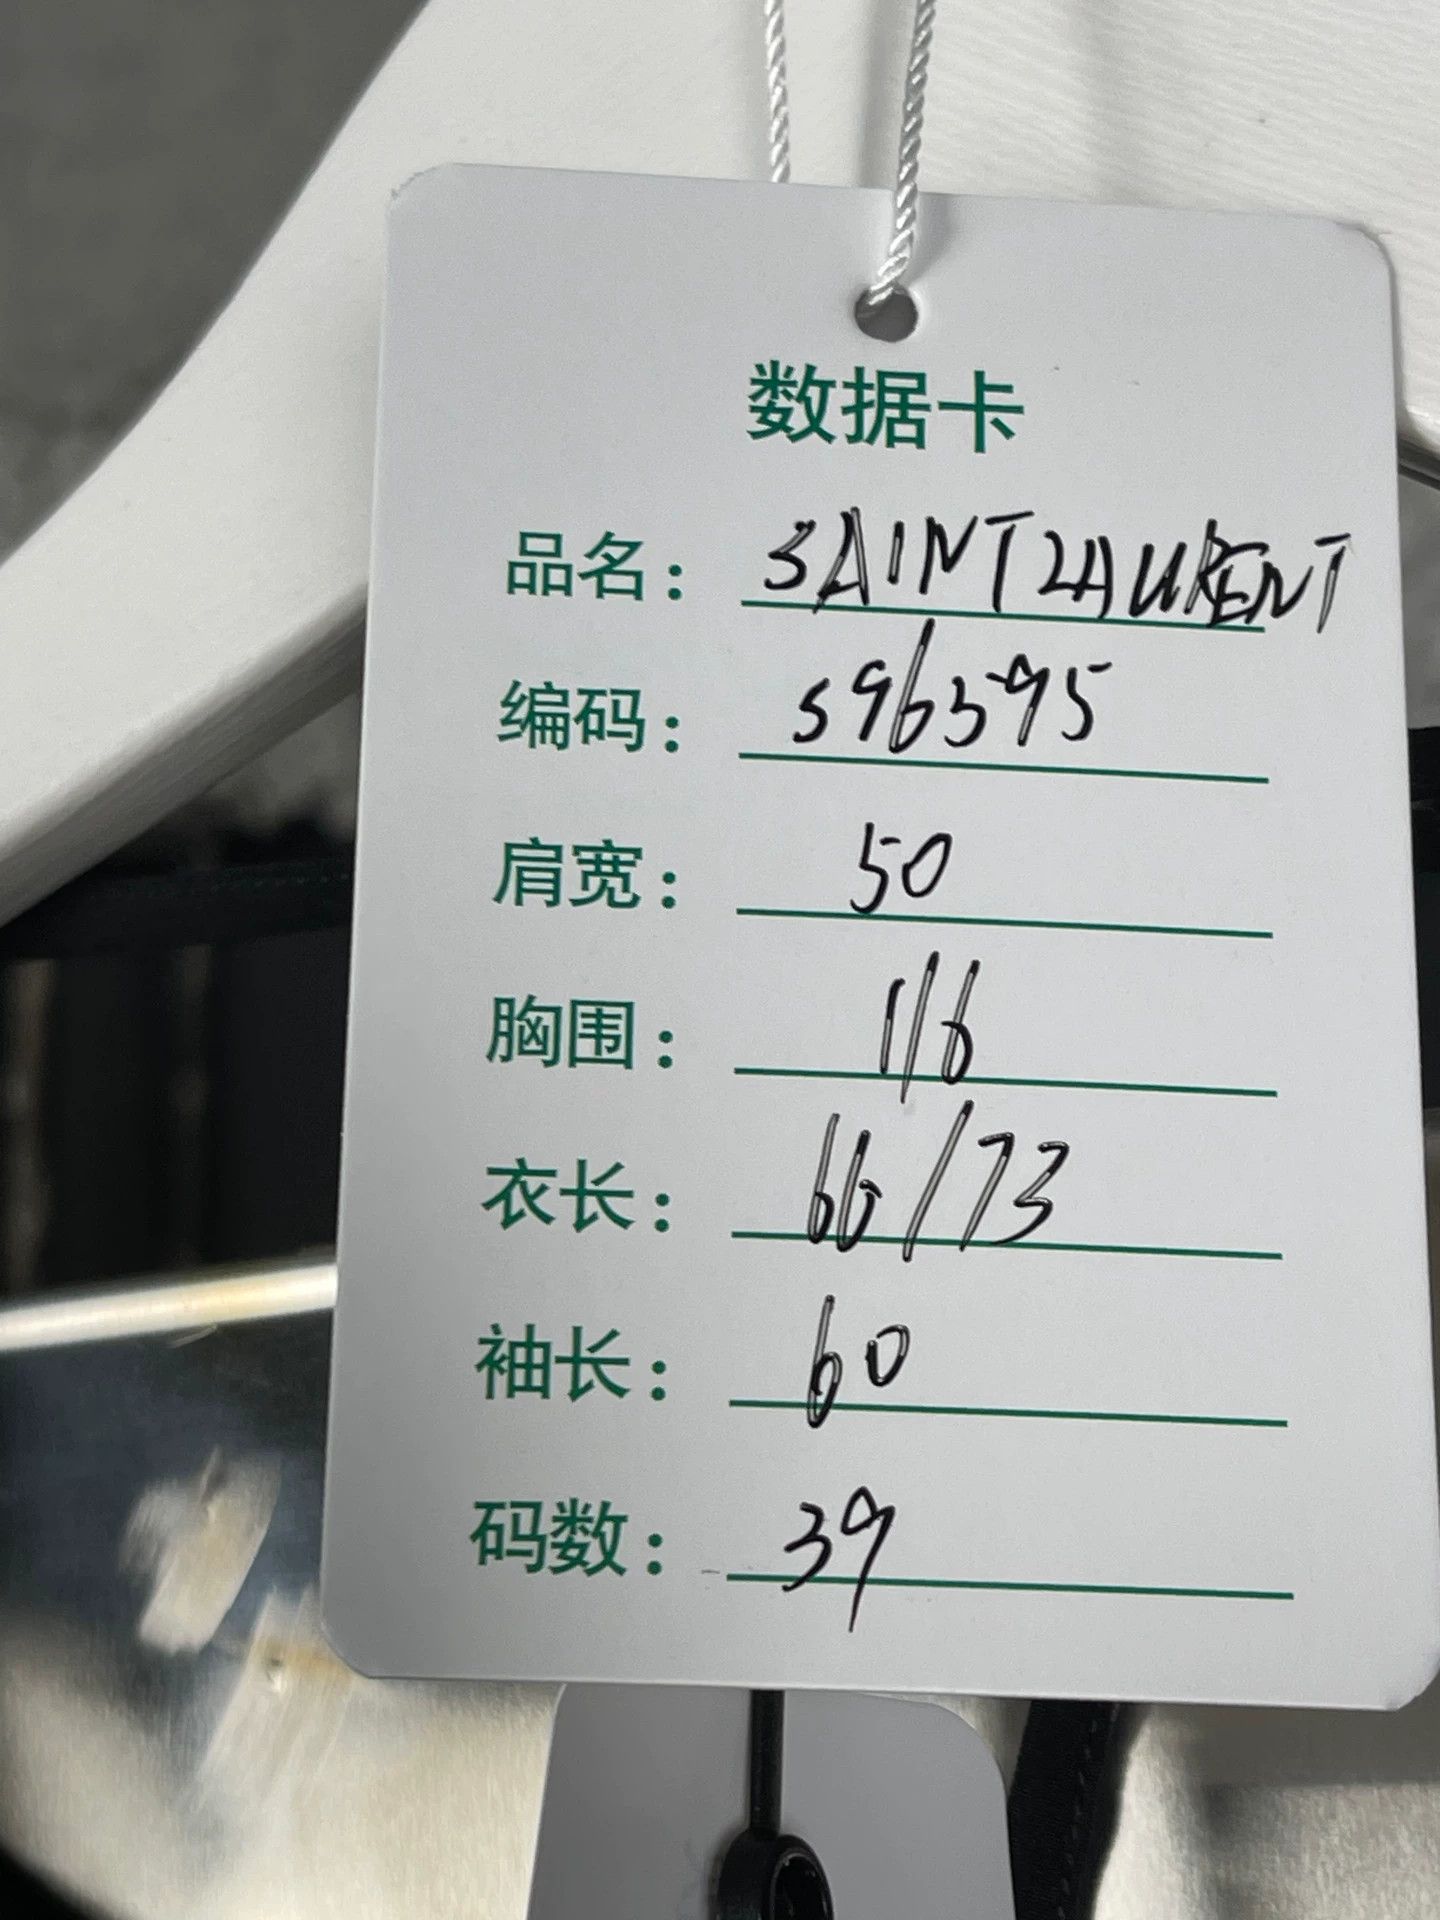 数据卡
品名：SAINT LAURENT
编码：596595
肩宽：50
胸围：116
衣长：66/73
袖长：60
码数：39